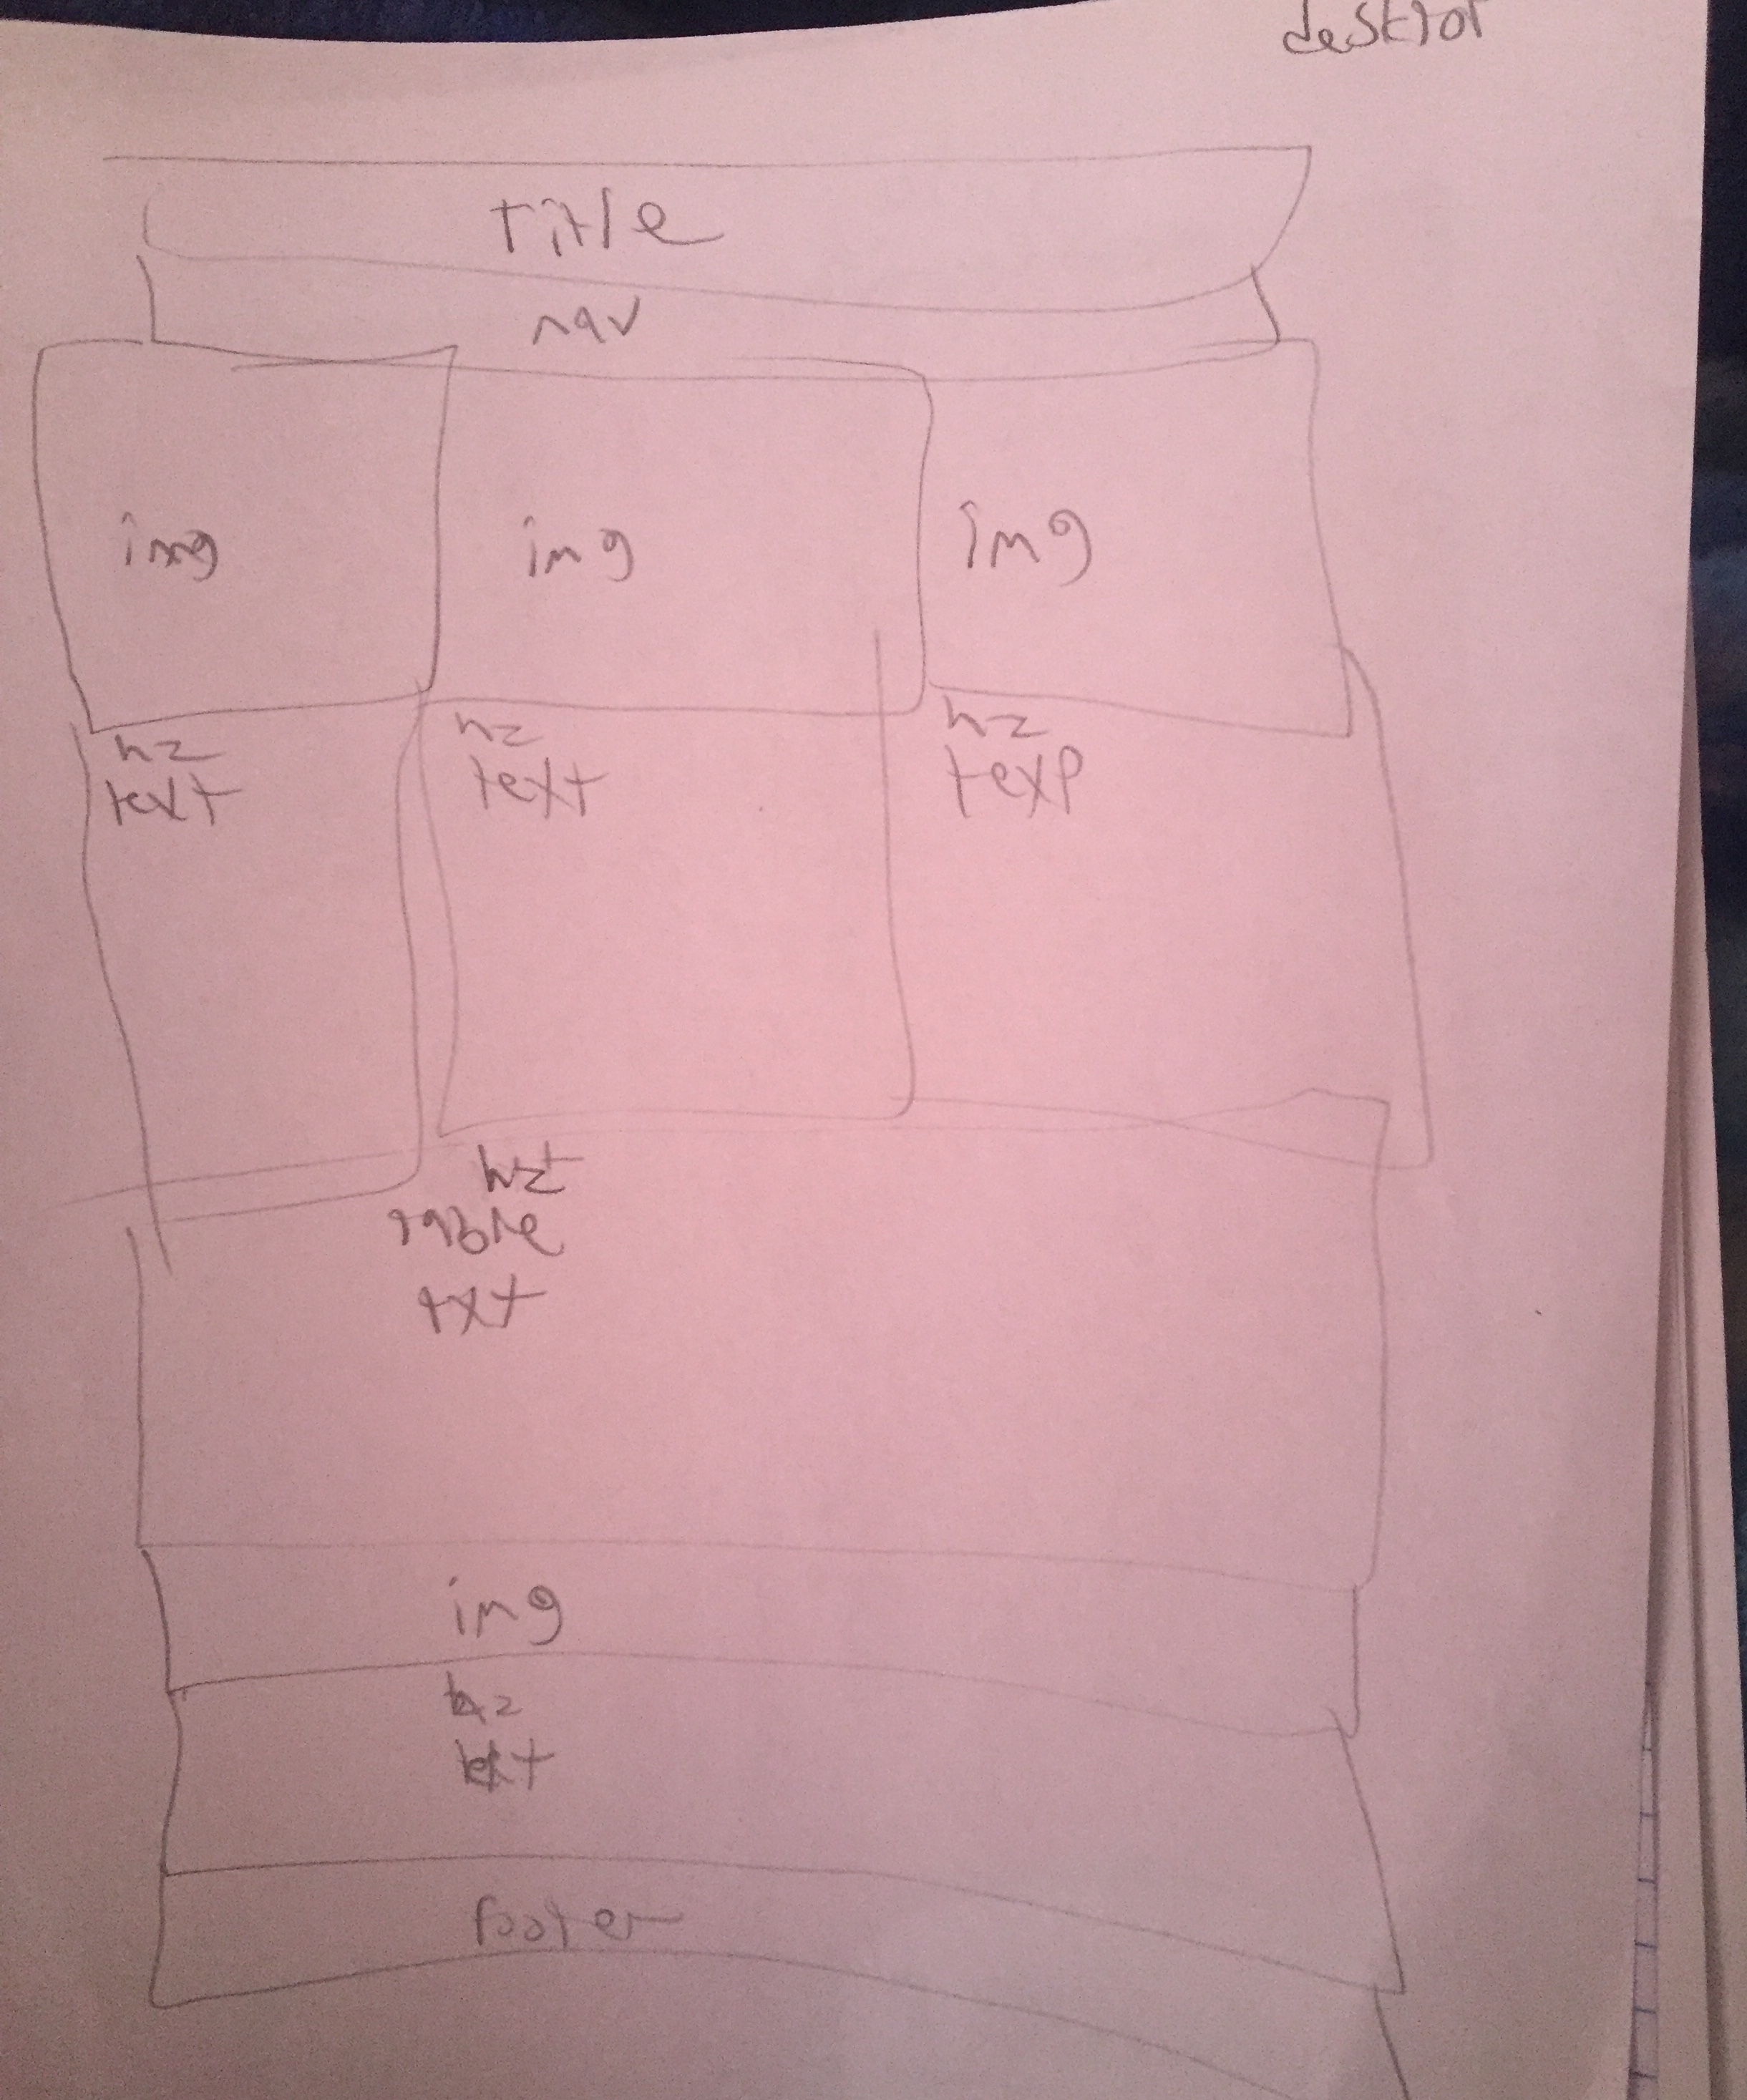 desktop
title
nav
img
img
img
h2
text
h2
text
h2
text
h2
table
txt
img
h2
text
footer